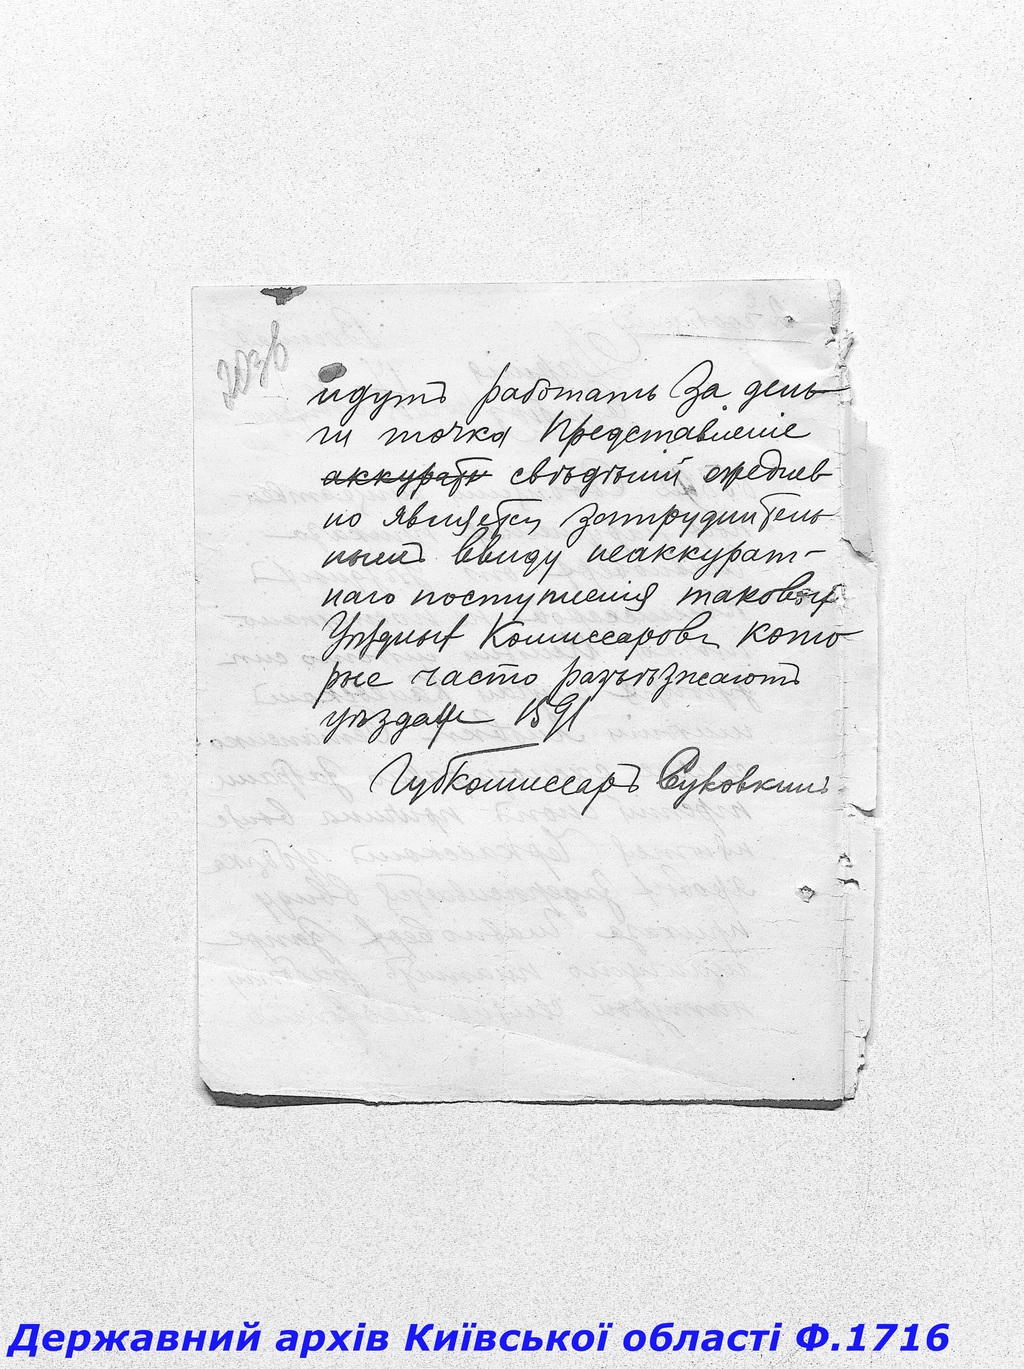 203в
идутъ работать За день
ги точка Представленіе
аккуратн свѣдѣній ежеднев
но является затруднитель
нымъ ввиду неаккурат-
наго поступленія таковых
Уѣздных Комиссаровъ кото
рые часто разъѣзжаютъ
уѣздам 1591
Губкомиссаръ Суковкинъ
Державний архів Київської області Ф.1716